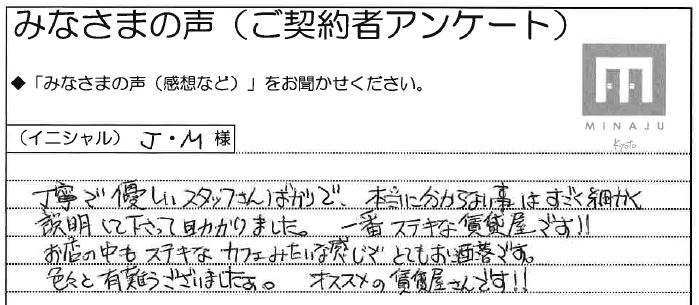 みなさまの声（ご契約者アンケート）
◆「みなさまの声（感想など）」をお聞かせください。
MINAJU
Kyoto
（イニシャル） J・M 様
丁寧で優しいスタッフさんばかりで、本当に分からない事はすごく細かく
説明して下さって助かりました。 一番ステキな賃貸屋です!!
お店の中もステキなカフェみたいな感じでとてもお洒落です。
色々と有難うございましたぁ。 オススメの賃貸屋さんです!!